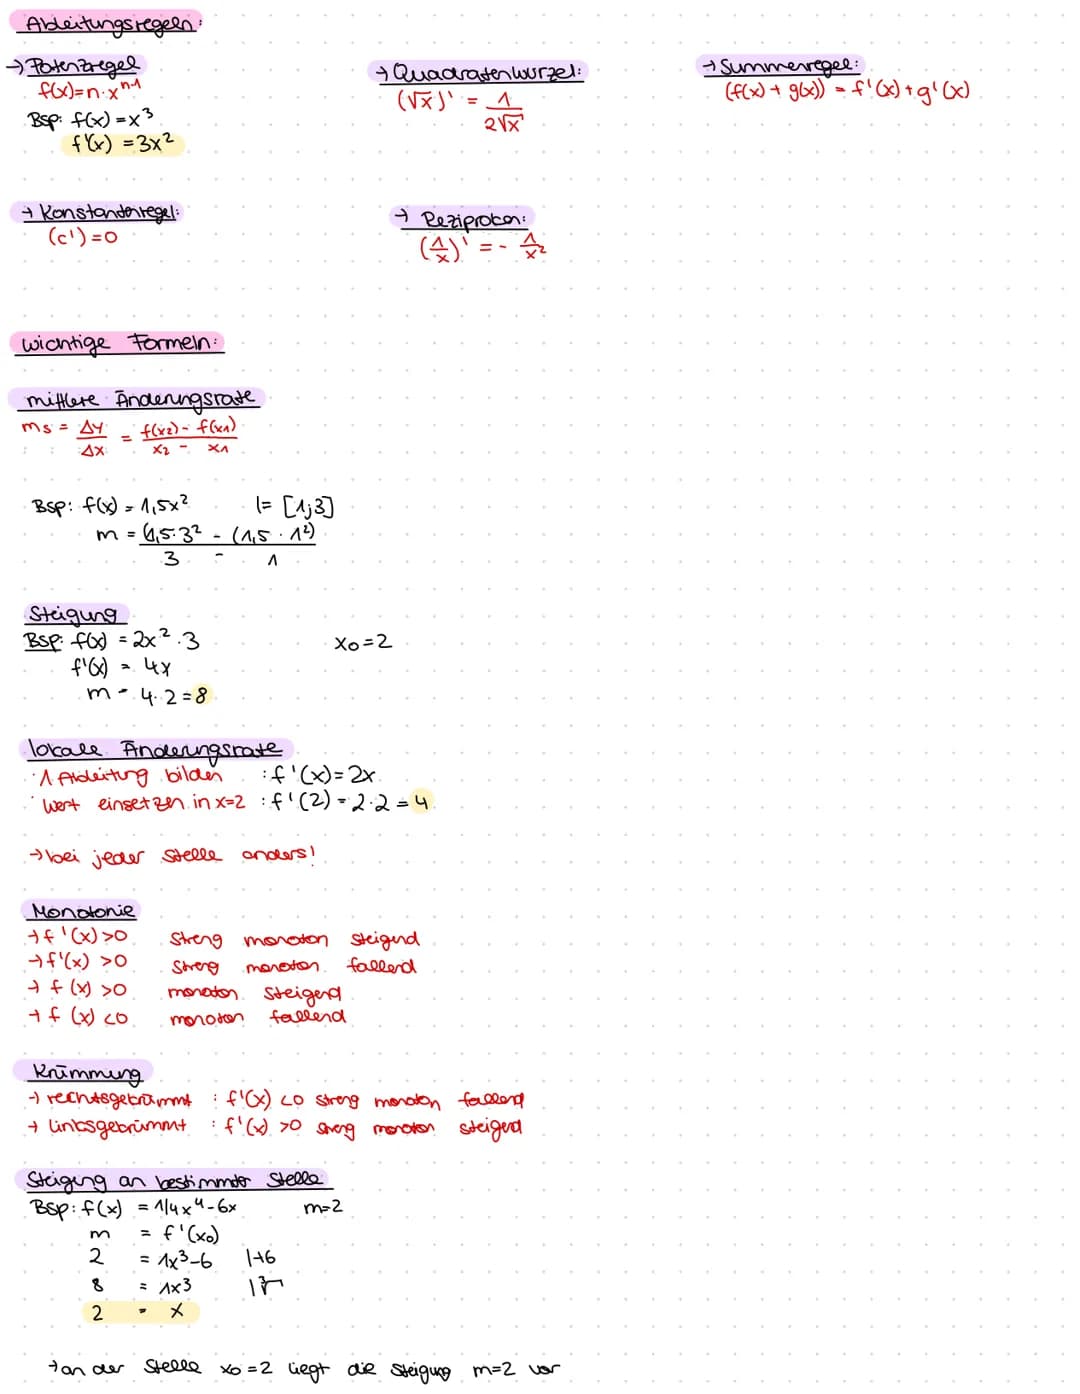 Ableitungsregeln:
→ Potenzregel
f(x)=n·x^n-1
Bsp: f(x)=x³
f'(x) =3x²
→ Quadratenwurzel:
(√x)' = 1/2√x
→ Summenregel:
(f(x) + g(x)) = f'(x)+g'(x)
→ Konstantenregel:
(c')=0
→ Reziproken:
(1/x)' = - 1/x²
wichtige Formeln:
mittlere Änderungsrate
ms = Δy/Δx = f(x2)- f(x1) / x2 - x1
Bsp: f(x) = 1,5x² I= [1;3]
m = (1,5·3² - (1,5 · 1²) / 3 - 1
Steigung
Bsp: f(x) = 2x²·3 x0=2
f'(x) = 4x
m = 4·2=8
lokale Änderungsrate
·1 Ableitung bilden :f'(x)=2x
·Wert einsetzen in x=2 :f'(2)=2·2=4
→bei jeder Stelle anders!
Monotonie
→f'(x)>0 streng monoton steigend
→f'(x) >0 streng monoton fallend
→ f (x) >0 monoton steigend
→ f (x) <0 monoton fallend
Krümmung
→ rechtsgekrümmt : f'(x) <0 streng monoton fallend
→ linksgekrümmt : f'(x) >0 streng monoton steigend
Steigung an bestimmter Stelle
Bsp: f(x) = 1/4x⁴-6x m=2
m = f'(x0)
2 = 1x³-6 |+6
8 = 1x³ |³√
2 = x
→an der Stelle x0=2 liegt die Steigung m=2 vor